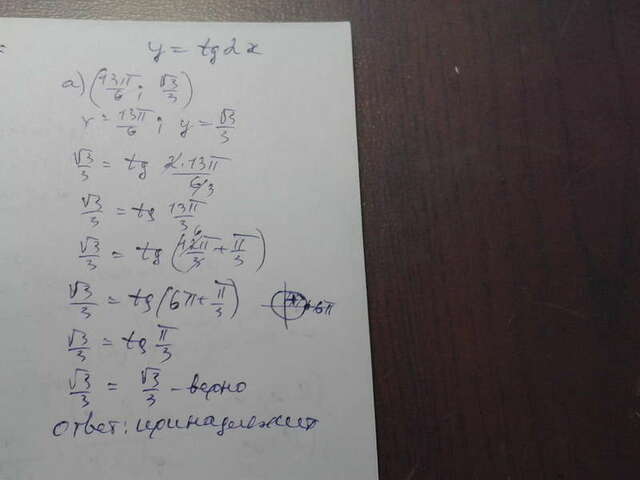 y = tg 2x
а) (13π/6; √3/3)
x = 13π/6; y = √3/3
√3/3 = tg 2·13π/6 3
√3/3 = tg 13π/3
√3/3 = tg (12π/3 + π/3)
√3/3 = tg (6π + π/3)
6π
√3/3 = tg π/3
√3/3 = √3/3 – верно
ответ: принадлежит